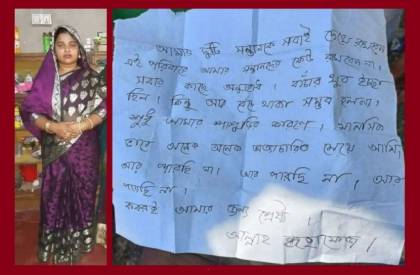 আমার দুটি সন্তানকে সবাই দেখে রাখবেন
এই পরিবারে আমার সন্তানদের কেউ রাখবেন না।
সবার কাছে অনুরোধ। বাঁচার খুব ইচ্ছা
ছিল। কিন্তু আর বেঁচে থাকা সম্ভব হলনা।
শুধু আমার শাশুড়ির কারণে। মানসিক
ভাবে অনেক অনেক অত্যাচারিত মেয়ে আমি,
আর পারছি না। আর পারছি না, আর
পারছি না।
কবরই আমার জন্য শ্রেষ্ঠ।
আল্লাহ